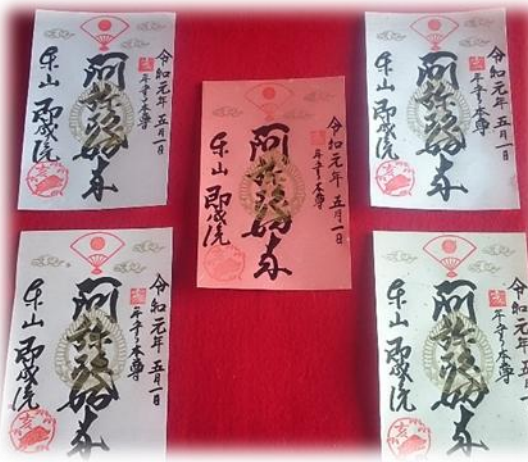 令和元年 五月一日
年守り本尊
阿弥陀如来
泉山 即成院
亥
令和元年 五月一日
年守り本尊
阿弥陀如来
泉山 即成院
令和元年 五月一日
年守り本尊
阿弥陀如来
泉山 即成院
亥
令和元年 五月一日
年守り本尊
阿弥陀如来
泉山 即成院
亥
令和元年 五月一日
年守り本尊
阿弥陀如来
泉山 即成院
亥